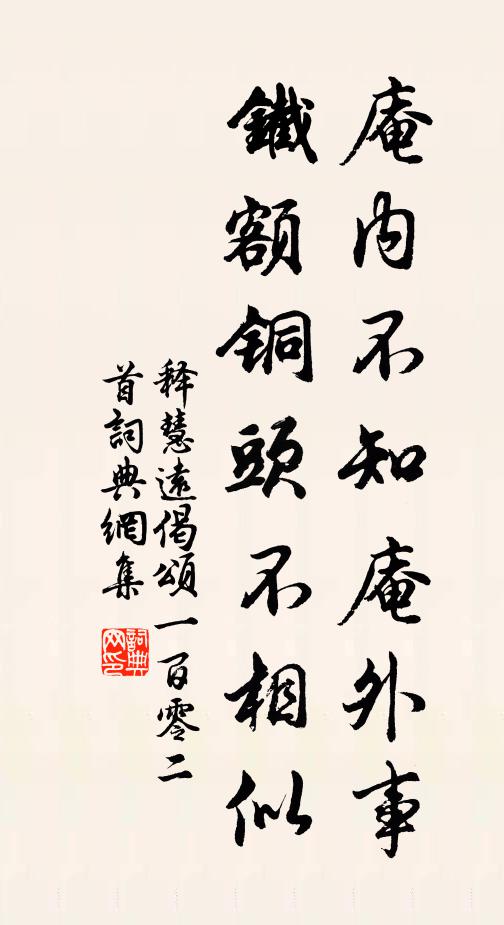 庵内不知庵外事
鐵額铜頭不相似
释慧遠偈頌一百零二
首詞典網集
詞典网印